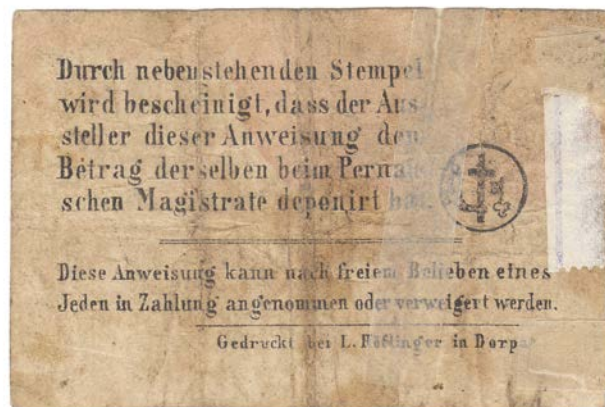 Durch nebenstehenden Stempel
wird bescheinigt, dass der Aus-
steller dieser Anweisung den
Betrag derselben beim Pernau-
schen Magistrate deponirt hat.
Diese Anweisung kann nach freiem Belieben eines
Jeden in Zahlung angenommen oder verweigert werden.
Gedruckt bei L. Höflinger in Dorpat